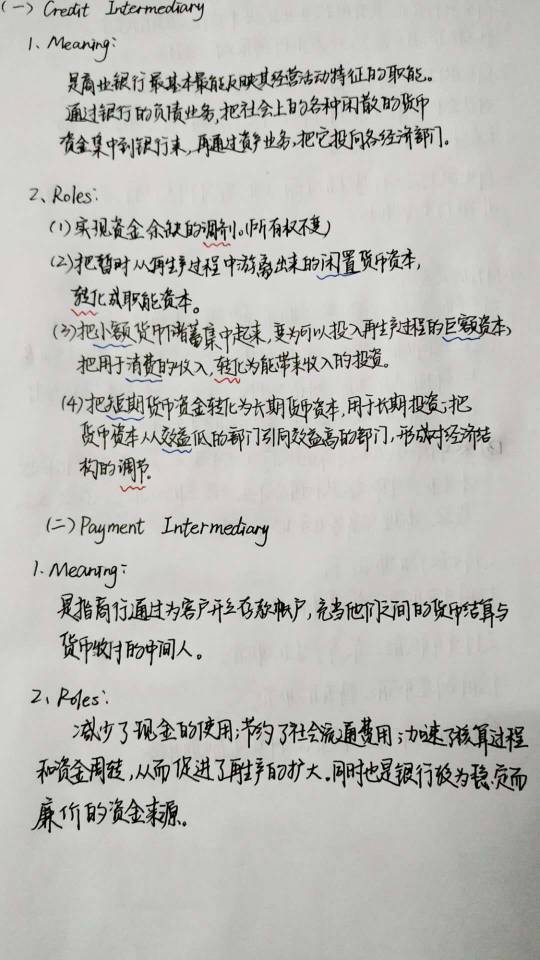 (一) Credit Intermediary
1、Meaning:
是商业银行最基本最能反映其经营活动特征的职能。
通过银行的负债业务,把社会上的各种闲散的货币
资金集中到银行来,再通过资产业务,把它投向各经济部门。
2、Roles:
(1)实现资金余缺的调剂。(所有权不变)
(2)把暂时从再生产过程中游离出来的闲置货币资本,
转化成职能资本。
(3)把小额货币储蓄集中起来,变为可以投入再生产过程的巨额资本;
把用于消费的收入,转化为能带来收入的投资。
(4)把短期货币资金转化为长期货币资本,用于长期投资;把
货币资本从效益低的部门引向效益高的部门,形成对经济结
构的调节。
(二)Payment Intermediary
1、Meaning:
是指商行通过为客户开立存款帐户,充当他们之间的货币结算与
货币收付的中间人。
2、Roles:
减少了现金的使用;节约了社会流通费用;加速了结算过程
和资金周转,从而促进了再生产的扩大。同时也是银行较为稳定而
廉价的资金来源。